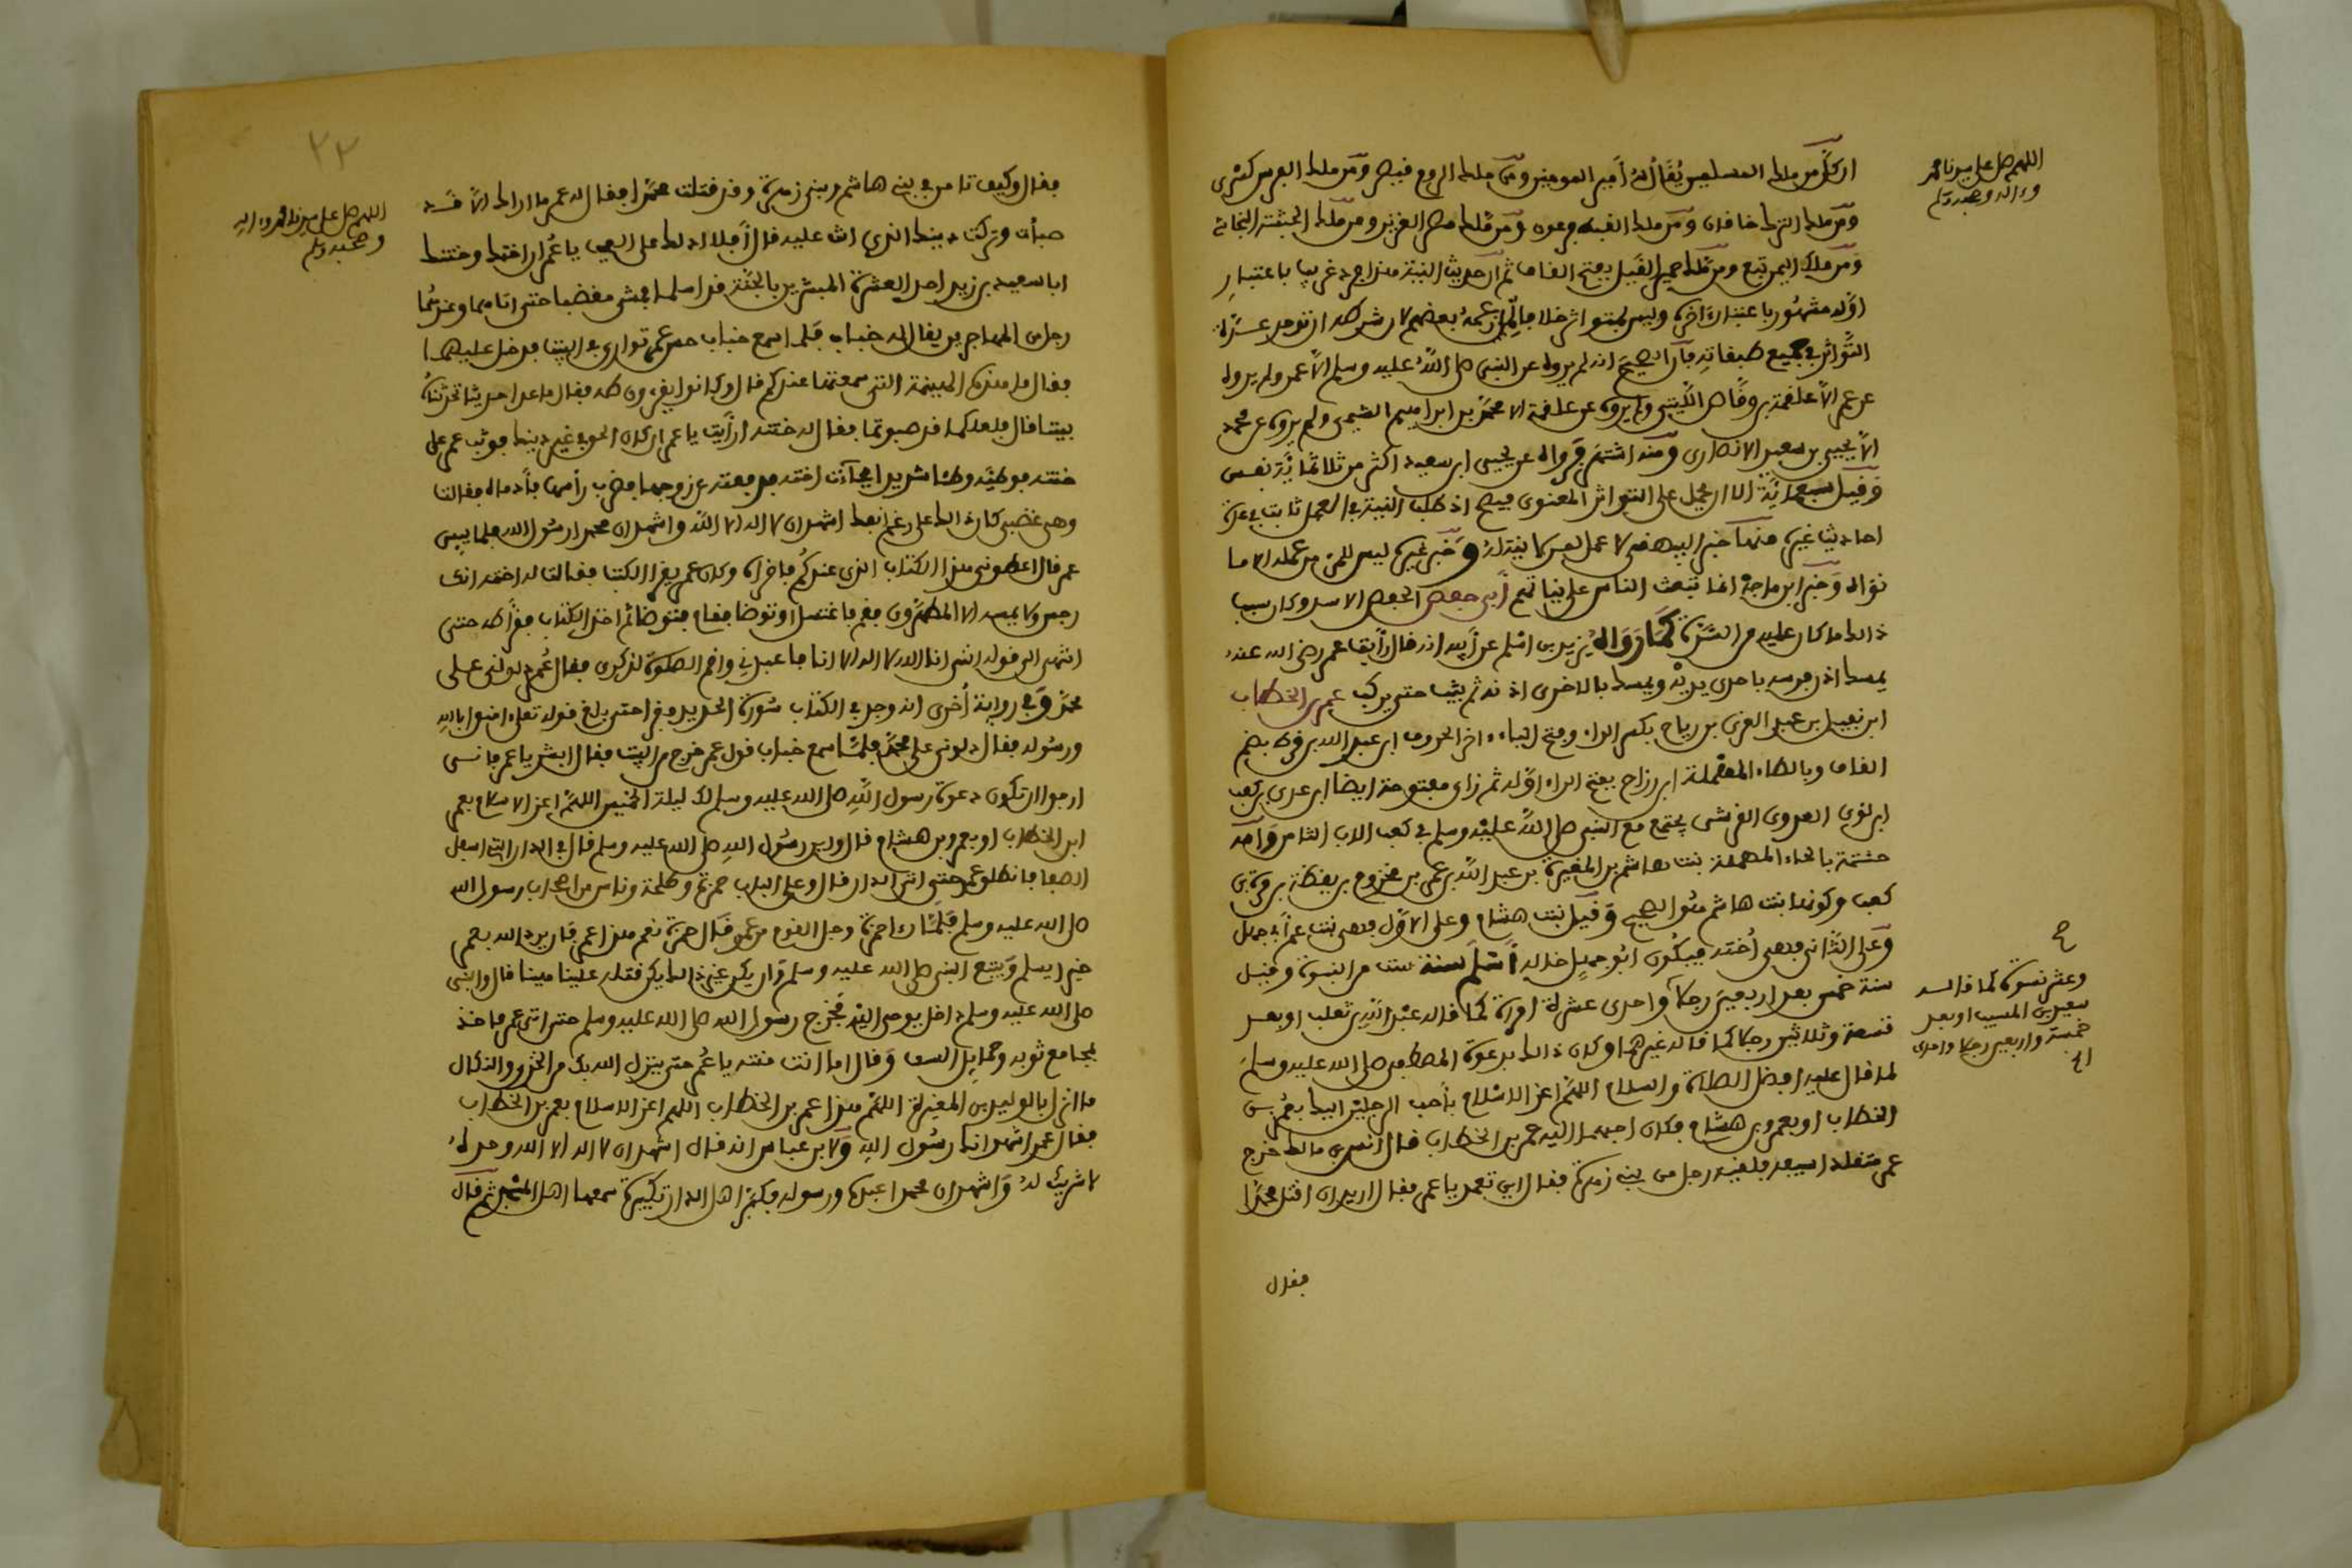 اللهم صل على سيدنا محمد
وءاله وصحبه وسلم
ان كل من ملك المسلمين يُقَالُ لَهُ أمير المومنين ومن ملك الروم قيصر ومن ملك الفرس كسرى
ومن ملك الترك خاقان ومن ملك القبط فرعون ومن ملك مصر العزيز ومن ملك الحبشة النجاشي
ومن ملك اليمن تبع ومن ملك حمير القيل بفتح القاف ثم ان حديث النية هذا فرد غريب باعتبار
اوله مشهور باعتبار ءاخره وليس بمتواتر خلافا لما زعمه بعضهم لان شرطه ان توجد عدة
التواتر في جميع طبقاته فان الصحيح انه لم يروه عن النبي صلى الله عليه وسلم الا عمر ولم يروه
عن عمر الا علقمة بن وقاص الليثي ولم يروه عن علقمة الا محمد بن ابراهيم التيمي ولم يروه عن محمد
الا يحيى بن سعيد الانصاري ومنه اشتهر فرواه عن يحيى ابن سعيد اكثر من ثلاثمائة نفس
وقيل سبعمائة الا ان يحمل على التواتر المعنوي فيصح اذ طلب النية في العمل ثابت في عدة
احاديث غيره منها خبر البيهقي لا عمل لمن لا نية له وخبر غيره ليس للمرء من عمله الا ما
نواه وخبر ابن ماجة انما تبعث الناس على نياتهم أبي حفص الحفص الاسد وكان سبب
ذالك ما كان عليه من الشدة كما رواه يزيد بن اسلم عن أبيه انه قال رأيت عمر رضي الله عنه
يمسك اذن فرسه باحدى يديه ويمسك بالاخرى اذنه ثم يثب حتى يركب عمر بن الخطاب
ابن نفيل بن عبد العزى بن رياح بكسر الراء وفتح الياء ءاخر الحروف ابن عبد الله بن قرط بضم
القاف وبالطاء المهملة ابن رزاح بفتح الراء اوله ثم زاي مفتوحة ايضا ابن عدي بن كعب
ابن لؤي العدوي القرشي يجتمع مع النبي صلى الله عليه وسلم في كعب الاب الثامن وامه
حنتمة بالحاء المهملة بنت هاشم بن المغيرة بن عبد الله بن عمر بن مخزوم بن يقظة بن مرة بن
كعب وكونها بنت هاشم هو الصحيح وقيل بنت هشام وعلى الاول فهي بنت عم أبي جهل
وعلى الثاني فهي أخته فيكون ابو جهل خاله أسلم سنة ست من النبوة وقيل
سنة خمس بعد اربعين رجلا واحدى عشرة امرأة كما قاله عبد الله بن ثعلب او بعد
تسعة وثلاثين رجلا كما قاله غيرهما وكان ذالك بدعوة المصطفى صلى الله عليه وسلم
لما قال عليه افضل الصلاة والسلام اللهم اعز الاسلام بأحب الرجلين اليك بعمر بن
الخطاب او بعمرو بن هشام فكان احبهما اليه عمر بن الخطاب قال انس بن مالك خرج
عمر متقلدا سيفه فلقيه رجل من بني زهرة فقال اين تعمد يا عمر فقال اريد ان اقتل محمدا
وعشر نسوة كما قاله
سعيد بن المسيب او بعد
خمسة واربعين رجلا واحدى
فقال
٢٣
اللهم صل على سيدنا محمد وءاله
وصحبه وسلم
فقال وكيف تامن في بني هاشم وبني زهرة وقد قتلت محمدا فقال له عمر ما اراك الا قد
صبأت وتركت دينك الذي انت عليه قال أفلا ادلك على العجب يا عمر ان اختك وختنك
ابا سعيد بن زيد احد العشرة المبشرين بالجنة قد اسلما فمشى مغضبا حتى اتاهما وعندهما
رجل من المهاجرين يقال له خباب فلما سمع خباب حس عمر توارى في البيت فدخل عليهما
فقال ما هذه الهينمة التي سمعتها عندكم قال وكانوا يقرءون طه فقال ما عدا حديثا تحدثناه
بيننا قال فلعلكما قد صبوتما فقال له ختنه ارأيت يا عمر ان كان الحق في غير دينك فوثب عمر على
ختنه فوطئه وطئا شديدا فجاءت اخته فدفعته عن زوجها فضرب رأسها فأدماه فقالت
وهي غضبى كان ذالك على رغم انفك اشهد ان لا اله الا الله واشهد ان محمدا رسول الله فلما يئس
عمر قال اعطوني هذا الكتاب الذي عندكم فاقرأه وكان عمر يقرأ الكتب فقالت له اخته انك
رجس ولا يمسه الا المطهرون فقم فاغتسل او توضا فقام فتوضا ثم اخذ الكتاب فقرأ طه حتى
انتهى الى قوله انني انا الله لا اله الا انا فاعبدني واقم الصلوة لذكري فقال عمر دلوني على
محمد وفي رواية أخرى انه وجد في الكتاب سورة الحديد فقرأ حتى بلغ قوله تعلى امنوا بالله
ورسوله فقال دلوني على محمد فلما سمع خباب قول عمر خرج من البيت فقال ابشر يا عمر فانني
ارجوا ان تكون دعوة رسول الله صلى الله عليه وسلم لك ليلة الخميس اللهم اعز الاسلام بعمر
ابن الخطاب او بعمرو بن هشام قال واين رسول الله صلى الله عليه وسلم قال في الدار التي اسفل
الصفا فانطلق عمر حتى اتى الدار قال وعلى الباب حمزة وطلحة وناس من اصحاب رسول الله
صلى الله عليه وسلم فلما رءا حمزة وجل القوم من عمر قال حمزة نعم هذا عمر فان يرد الله بعمر
خيرا يسلم ويتبع النبي صلى الله عليه وسلم وان يكن غير ذالك يكن قتله علينا هينا قال والنبي
صلى الله عليه وسلم داخل يوحى اليه فخرج رسول الله صلى الله عليه وسلم حتى اتى عمر فاخذ
بمجامع ثوبه وحمايل السيف وقال اما انت منته يا عمر حتى ينزل الله بك من الخزي والنكال
ما انزل بالوليد بن المغيرة اللهم هذا عمر بن الخطاب اللهم اعز الاسلام بعمر بن الخطاب
فقال عمر اشهد انك رسول الله ولابن عباس انه قال اشهد ان لا اله الا الله وحده
لا شريك له واشهد ان محمدا عبده ورسوله فكبر اهل الدار تكبيرة سمعها اهل المسجد ثم قال